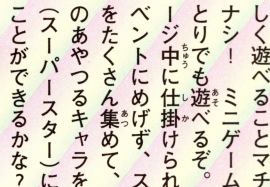 しく遊べることマチ
ナシ! ミニゲーム
とりでも遊べるぞ。
ージ中に仕掛けられ
ベントにめげず、ス
をたくさん集めて、
のあやつるキャラを
(スーパースター)に
ことができるかな?